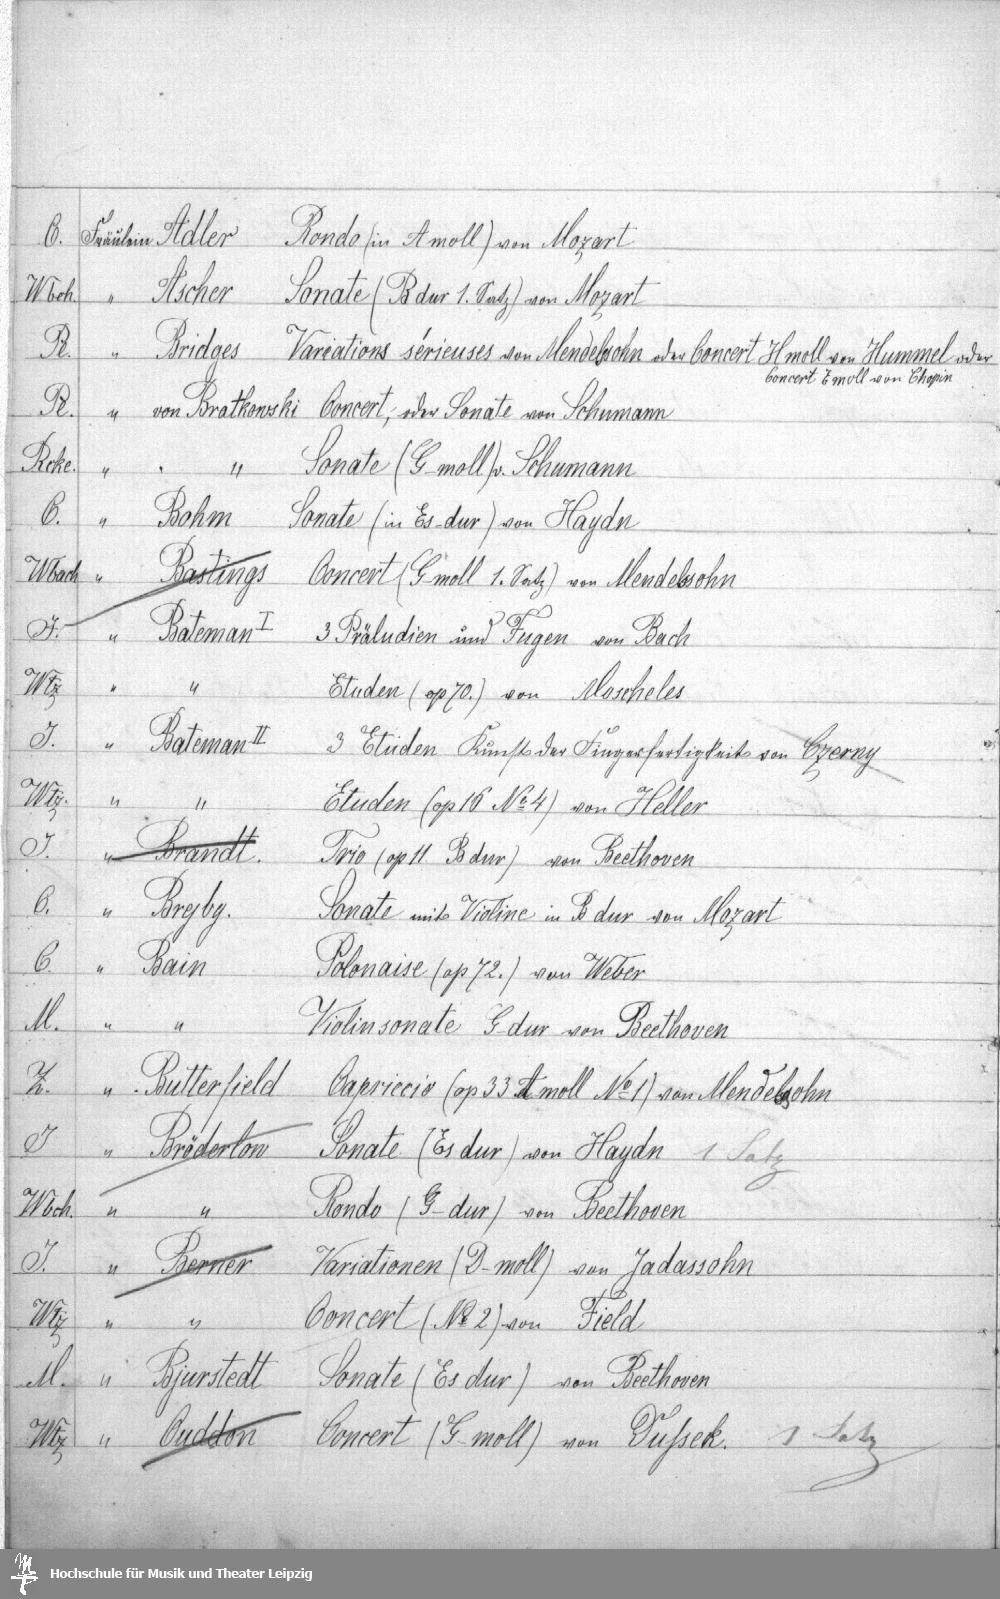 C. Fräulein Adler Rondo (in A moll) von Mozart
Wbch. " Ascher Sonate (B dur 1. Satz) von Mozart
R. " Bridges Variations sérieuses von Mendelssohn oder Concert H moll von Hummel oder
Concert E moll von Chopin
R. " von Bratkowski Concert, oder Sonate von Schumann
Rcke. " " " Sonate (G moll) v. Schumann
C. " Bohm Sonate (in Es-dur) von Haydn
Wbach " Bastings Concert (G moll 1. Satz) von Mendelssohn
J. " Bateman I 3 Präludien und Fugen von Bach
Wtz " " Etuden (op 70.) von Moscheles
J. " Bateman II 3 Etüden Kunst der Fingerfertigkeit von Czerny
Wtz. " " Etuden (op 16 No 4) von Heller
J. " Brandt. Trio (op 11 B dur) von Beethoven
C. " Sonate mit Violine in B dur von Mozart
C. " Bain Polonaise (op 72.) von Weber
M. " " Violinsonate G dur von Beethoven
Z. " Butterfield Capriccio (op 33 A moll No 1) von Mendelssohn
J " Sonate (Es dur) von Haydn 1 Satz
Wbch. " " Rondo (G-dur) von Beethoven
J. " Berner Variationen (D-moll) von Jadassohn
Wtz " " Concert (No 2) von Field
M. " Bjurstedt Sonate (Es dur) von Beethoven
Wtz " Cuddon Concert (G-moll) von Dussek. 1 Satz
Hochschule für Musik und Theater Leipzig